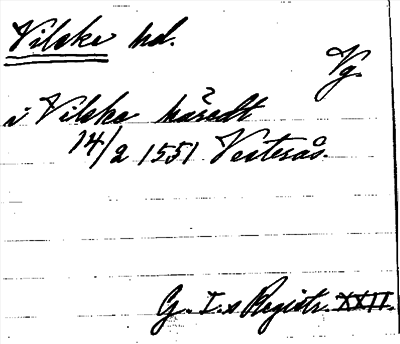 Vilske hd.
Vg.
i Vilske häredt
14/2 1551 Vesterås.
G. I.s Registr. XXII.